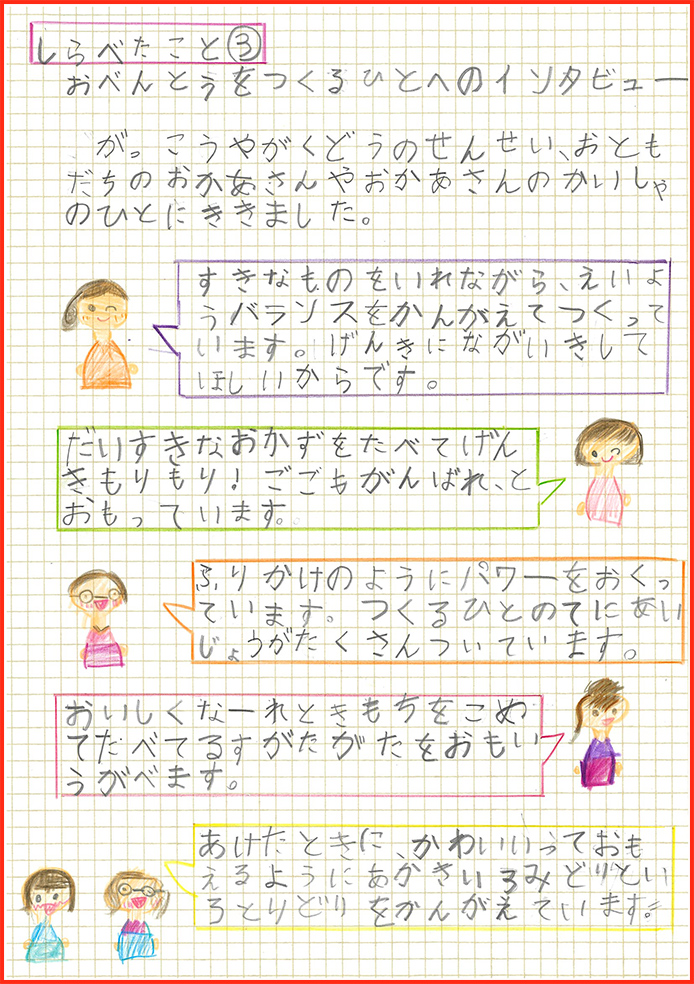 しらべたこと③
おべんとうをつくるひとへのインタビュー
がっこうやがくどうのせんせい、おとも
だちのおかあさんやおかあさんのかいしゃ
のひとにききました。
すきなものをいれながら、えいよ
うバランスをかんがえてつくって
います。げんきにながいきして
ほしいからです。
だいすきなおかずをたべてげん
きもりもり!ごごもがんばれ、と
おもっています。
ふりかけのようにパワーをおくっ
ています。つくるひとのてにあい
じょうがたくさんついています。
おいしくなーれときもちをこめ
てたべてるすがたがたをおもい
うがべます。
あけたときに、かわいいっておも
えるようにあかきいろみどりとい
ろとりどりをかんがえています。